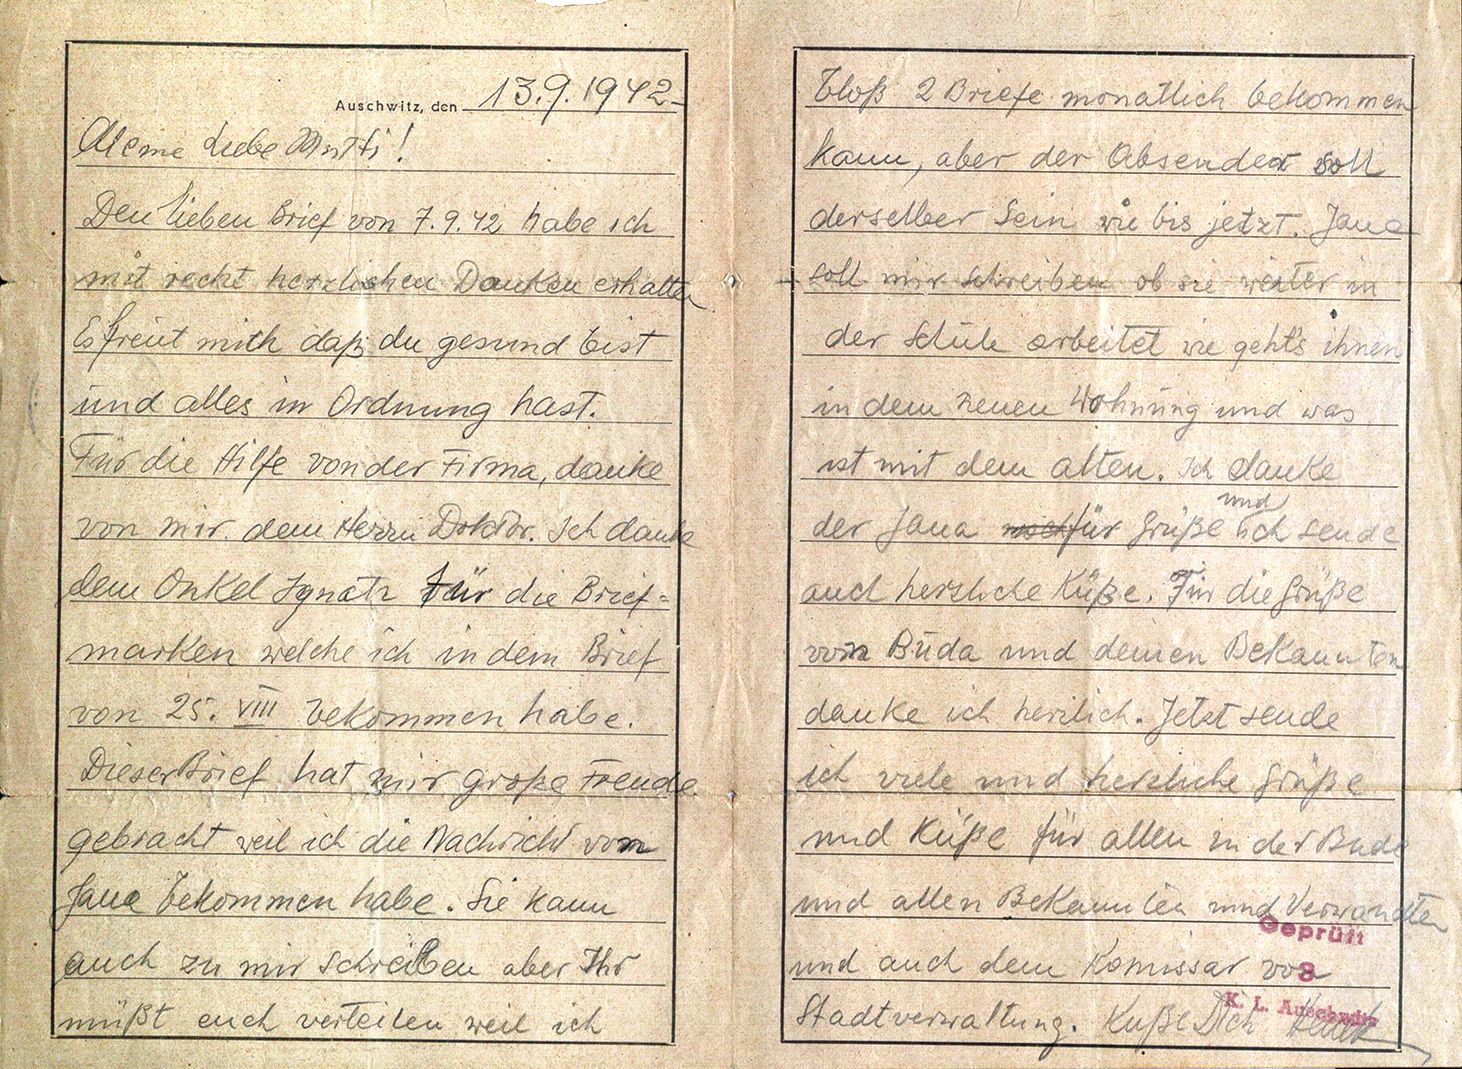 Auschwitz, den 13.9.1942
Meine Liebe Mutti!
Den lieben Brief von 7.9.42 habe ich
mit recht herzlichen Danken erhalten
Es freut mich daß du gesund bist
und alles in Ordnung hast.
Für die Hilfe von der Firma, danke
von mir dem Herrn Doktor. Ich danke
dem Onkel Ignatz für die Brief=
marken welche ich in dem Brief
von 25. VIII bekommen habe.
Dieser Brief hat mir große Freude
gebracht weil ich die Nachricht von
Jana bekommen habe. Sie kann
auch zu mir schreiben aber Ihr
müßt euch verteilen weil ich
bloß 2 Briefe monatlich bekommen
kann, aber der Absender soll
derselber sein wie bis jetzt. Jana
soll mir schreiben ob sie weiter in
der Schule arbeitet wie geht's ihnen
in dem neuen Wohnung und was
ist mit dem alten. Ich danke
der Jana für Grüße und ich sende
auch herzliche Küße. Für die Grüße
von Buda und deinen Bekannten
danke ich herzlich. Jetzt sende
ich viele und herzliche Grüße
und Küße für allen in der Buda
und allen Bekannten und Verwandten
Geprüft
und auch dem Komissar von
8
K. L. Auschwitz
Stadtverwaltung. Kuße Dich